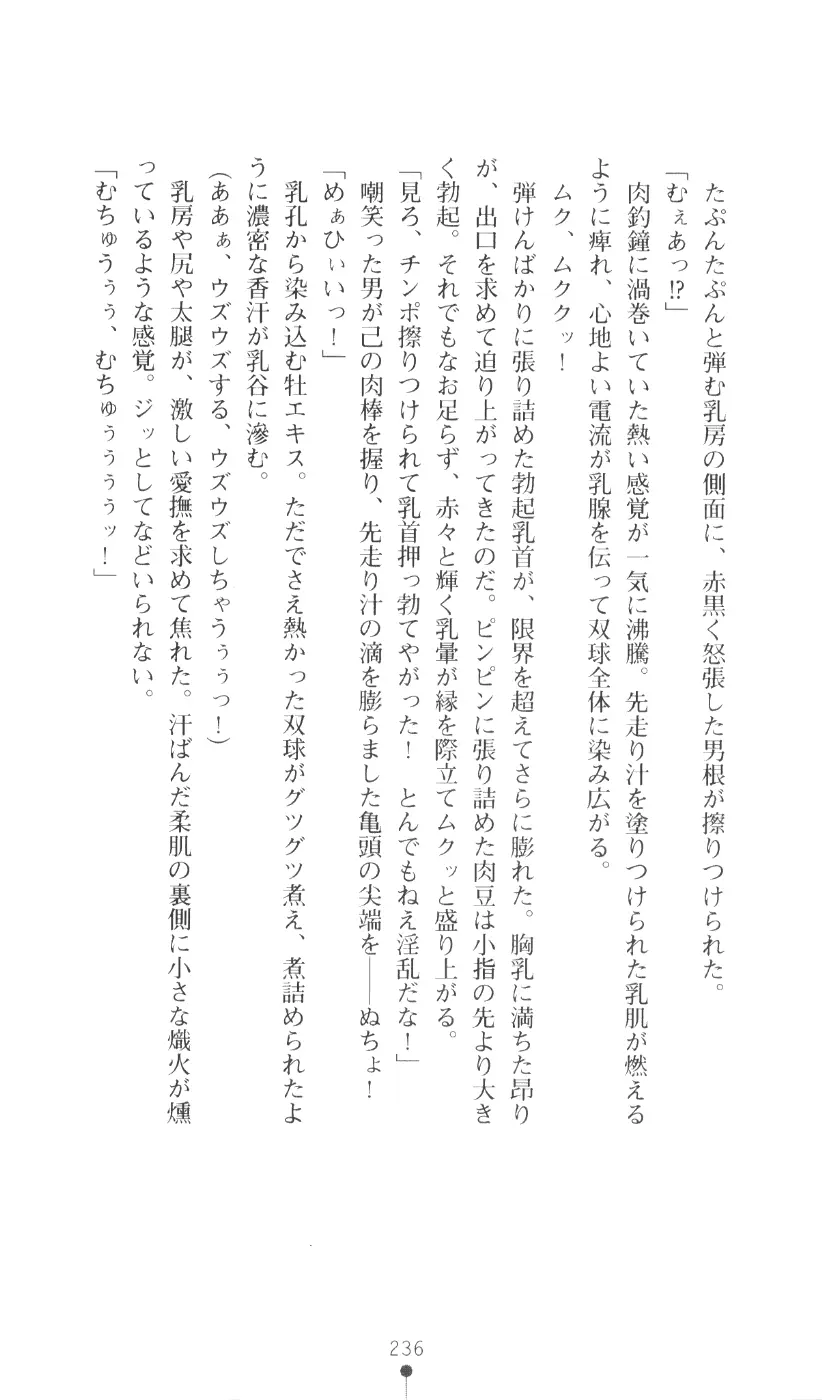 たぷんたぷんと弾む乳房の側面に、赤黒く怒張した男根が擦りつけられた。
「むぇあっ!?」
肉釣鐘に渦巻いていた熱い感覚が一気に沸騰。先走り汁を塗りつけられた乳肌が燃える
ように痺れ、心地よい電流が乳腺を伝って双球全体に染み広がる。
ムク、ムククッ！
弾けんばかりに張り詰めた勃起乳首が、限界を超えてさらに膨れた。胸乳に満ちた昂り
が、出口を求めて迫り上がってきたのだ。ピンピンに張り詰めた肉豆は小指の先より大き
く勃起。それでもなお足らず、赤々と輝く乳暈が縁を際立てムクッと盛り上がる。
「見ろ、チンポ擦りつけられて乳首押っ勃てやがった！　とんでもねえ淫乱だな！」
嘲笑った男が己の肉棒を握り、先走り汁の滴を膨らました亀頭の尖端を――ぬちょ！
「めぁひぃいっ！」
乳孔から染み込む牡エキス。ただでさえ熱かった双球がグツグツ煮え、煮詰められたよ
うに濃密な香汗が乳谷に滲む。
（ああぁ、ウズウズする、ウズウズしちゃうぅぅっ！）
乳房や尻や太腿が、激しい愛撫を求めて焦れた。汗ばんだ柔肌の裏側に小さな熾火が燻
っているような感覚。ジッとしてなどいられない。
「むちゅうぅぅ、むちゅぅぅぅぅッ！」
236